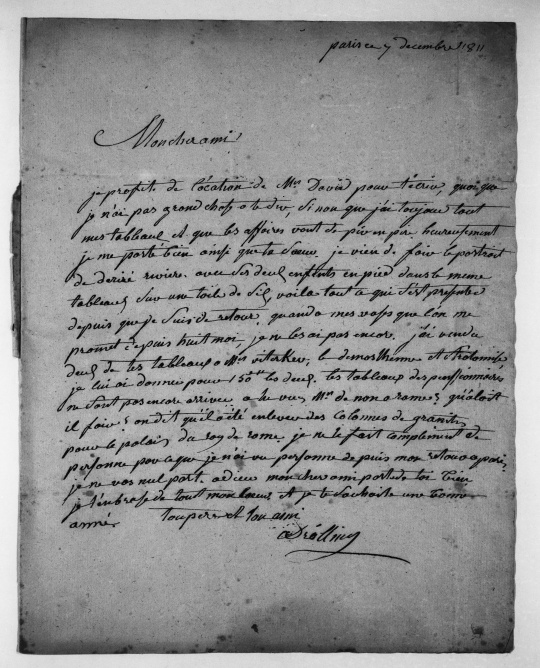 paris ce 7 decembre 1811
Mon cher ami
je profite de l'ocation de Mr David pour t'écrir, quoi que
je n'ai pas grand chose a te dir, si non que j'ai toujour tout
mes tableaux et que les affaires vont de pir en pir heureusement
je me porte bien ainsi que ta soeur. je vien de fair le portrait
de deziré riviere avec ses deux enfents en pied dans le meme
tableaux sur une toile de six, voila tout ce qui s'est presenté
depuis que je suis de retour, quand a mes que lon me
promet depuis huit moi, je ne les ai pas encore, j'ai vendu
deux de tes tableaux a Mr le demosthene et
je lui ai donné pour 150 les deux. les tableaux des penssionnaires
ne sont pas encore arrivee a tu vu Mr de non a rome, qu'aloit
il fair, on dit qu'il a été enlever des colonnes de granits
pour le palais du roy de rome, je ne te fait complement de
personne par ce que je n'ai vu personne depuis mon retour a paris,
je ne vas nul part. adieu mon cher ami porte toi bien
je t'enbrasse de tout mon coeur et je te souhaite une bonne
année. ton pere et ton ami
Drölling